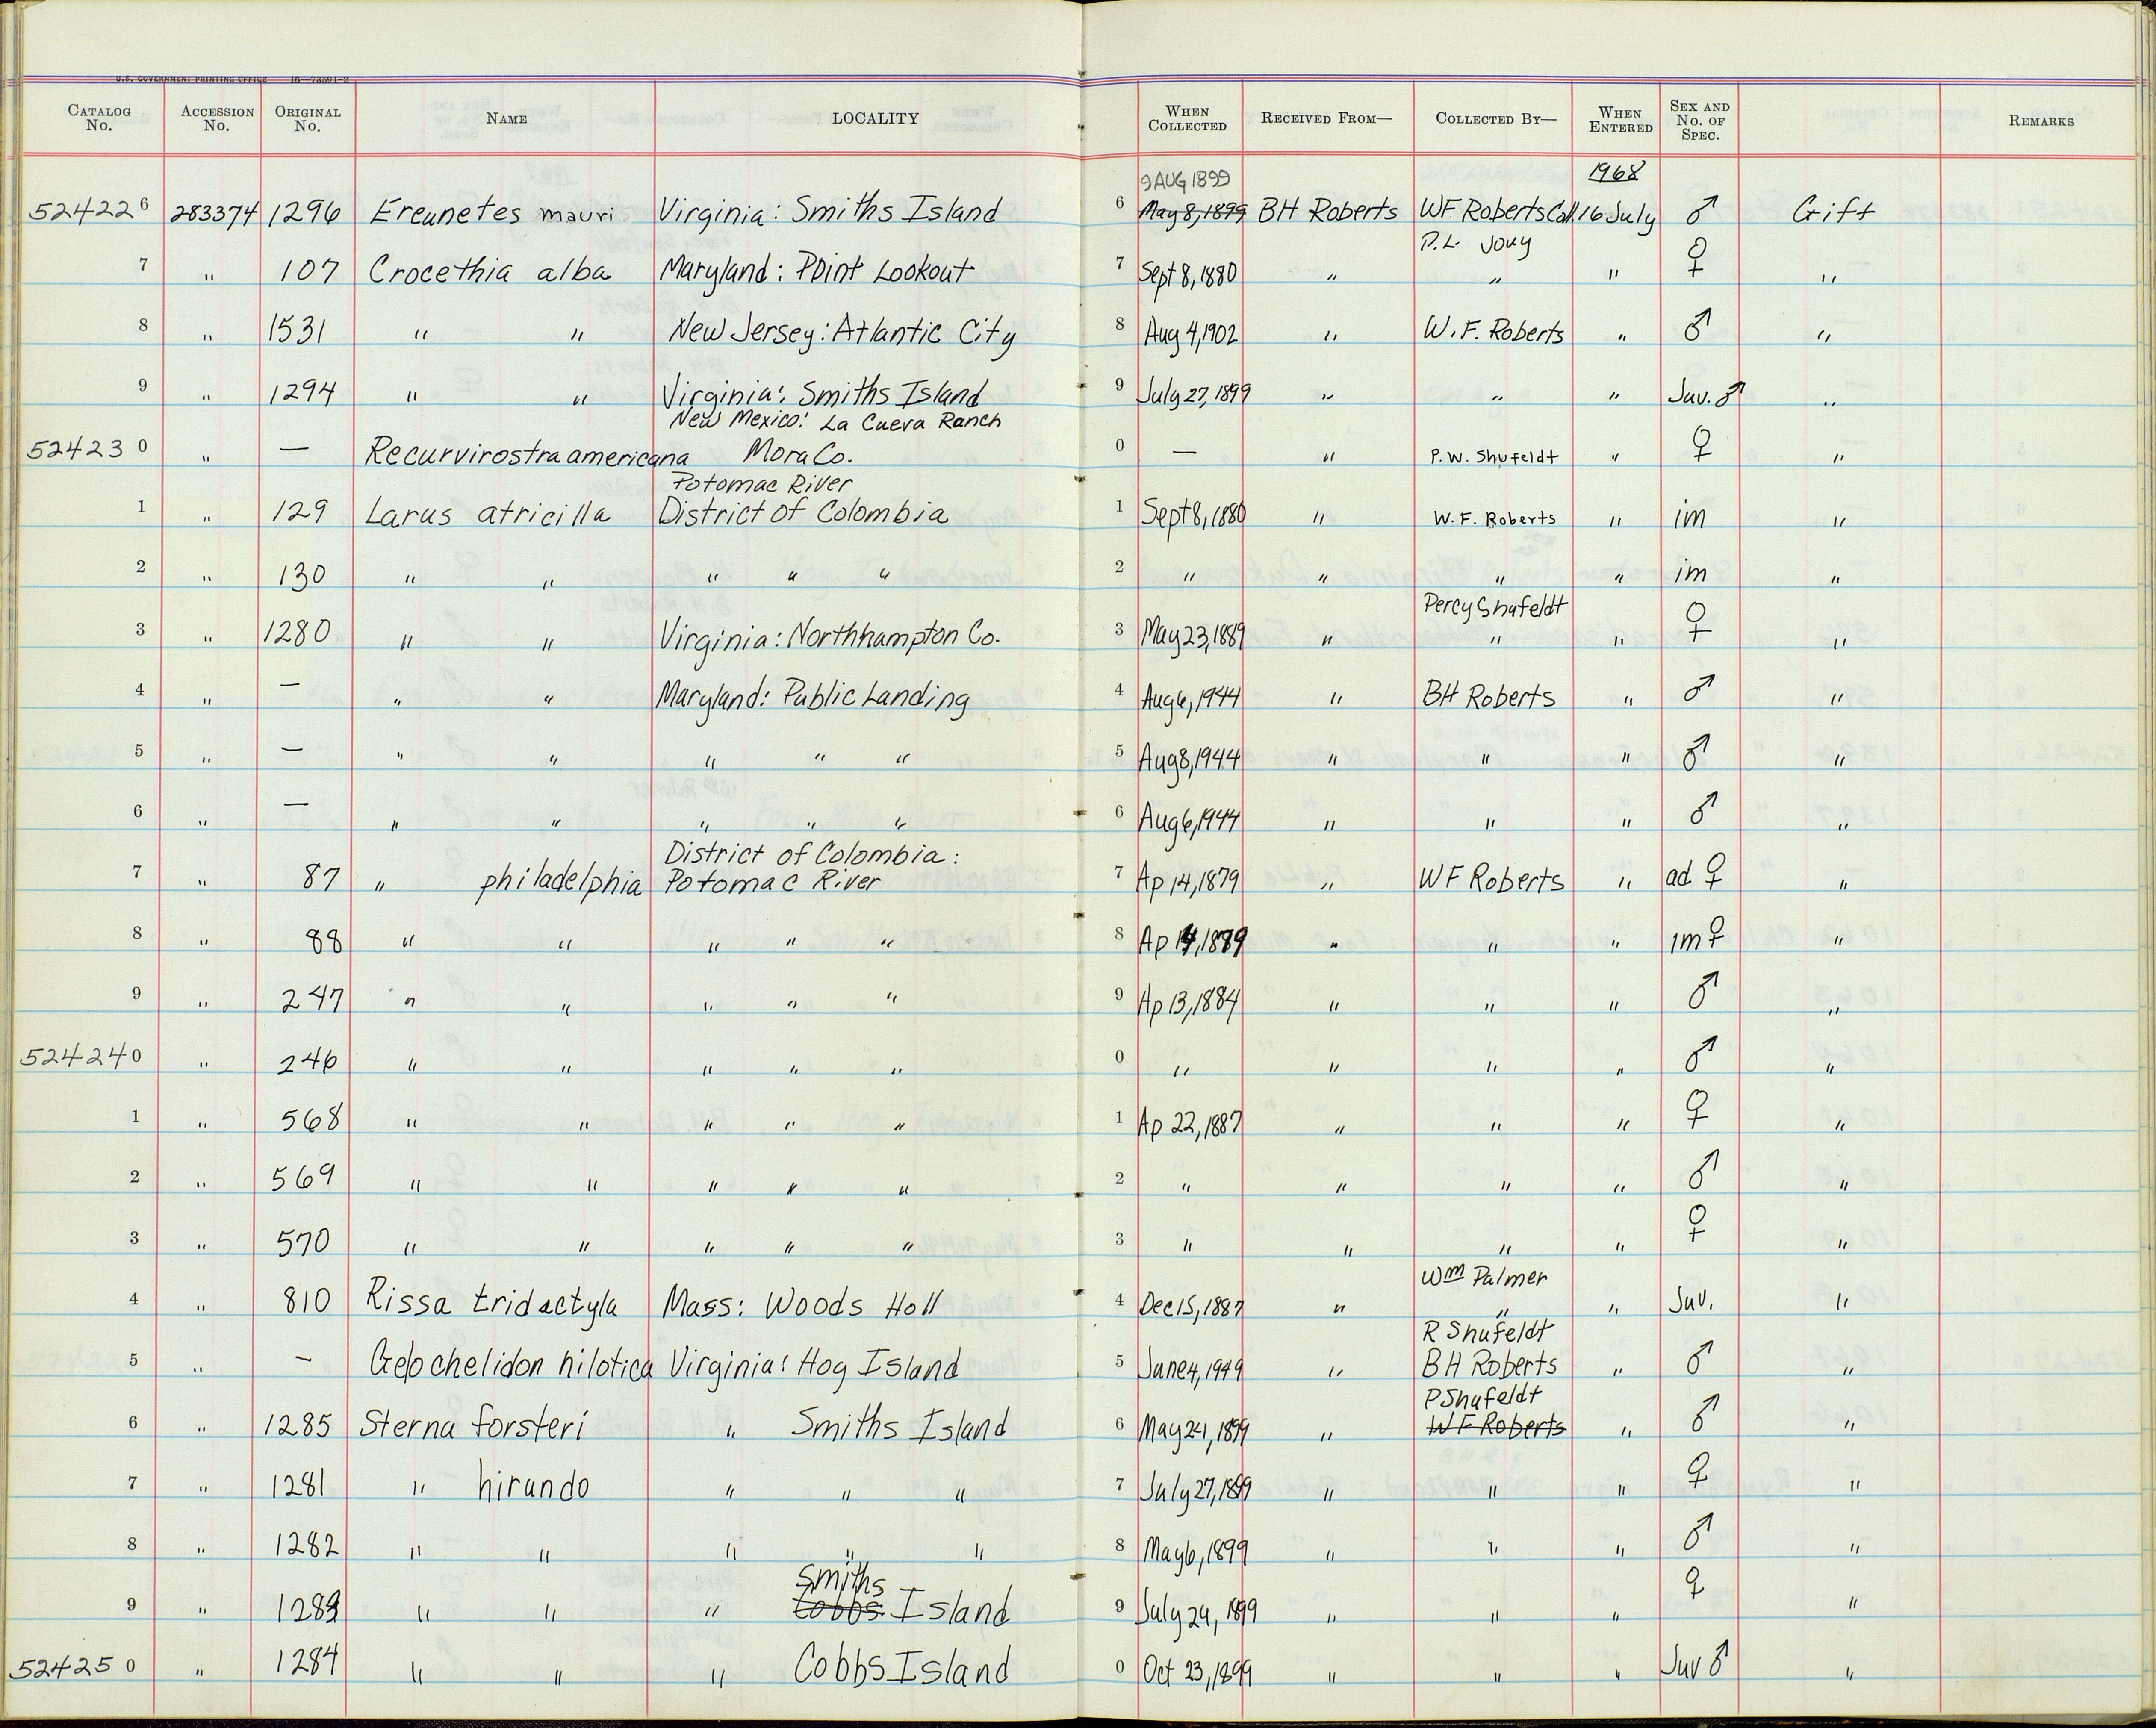 U.S. GOVERNMENT PRINTING OFFICE 16—73501-2
CATALOG No. ACCESSION No. ORIGINAL No. NAME LOCALITY WHEN COLLECTED RECEIVED FROM— COLLECTED BY— WHEN ENTERED SEX AND No. OF SPEC. REMARKS
9 AUG 1899 1968
524226 283374 1296 Ereunetes mauri Virginia: Smiths Island 6 May 8, 1899 BH Roberts WF Roberts Coll. 16 July ♂ Gift
P.L. Jouy
7 " 107 Crocethia alba Maryland: Point Lookout 7 Sept 8, 1880 " " " ♀ "
8 " 1531 " " New Jersey: Atlantic City 8 Aug 4, 1902 " W.F. Roberts " ♂ "
9 " 1294 " " Virginia: Smiths Island 9 July 27, 1899 " " " Juv. ♂ "
New Mexico: La Cueva Ranch
524230 " — Recurvirostra americana Mora Co. 0 — " P.W. Shufeldt " ♀ "
Potomac River
1 " 129 Larus atricilla District of Colombia 1 Sept 8, 1880 " W.F. Roberts " im "
2 " 130 " " " " " 2 " " " " im "
Percy Shufeldt
3 " 1280 " " Virginia: Northhampton Co. 3 May 23, 1889 " " " ♀ "
4 " — " " Maryland: Public Landing 4 Aug 6, 1944 " BH Roberts " ♂ "
5 " — " " " " " 5 Aug 8, 1944 " " " ♂ "
6 " — " " " " " 6 Aug 6, 1944 " " " ♂ "
District of Colombia:
7 " 87 " philadelphia Potomac River 7 Ap 14, 1879 " WF Roberts " ad ♀ "
8 " 88 " " " " " 8 Ap 14, 1879 " " " im ♀ "
9 " 247 " " " " " 9 Ap 13, 1884 " " " ♂ "
524240 " 246 " " " " " 0 " " " " ♂ "
1 " 568 " " " " " 1 Ap 22, 1887 " " " ♀ "
2 " 569 " " " " " 2 " " " " ♂ "
3 " 570 " " " " " 3 " " " " ♀ "
Wm Palmer
4 " 810 Rissa tridactyla Mass: Woods Holl 4 Dec 15, 1887 " " " Juv. "
R Shufeldt
5 " — Gelochelidon nilotica Virginia: Hog Island 5 June 4, 1949 " BH Roberts " ♂ "
P Shufeldt
6 " 1285 Sterna forsteri " Smiths Island 6 May 24, 1899 " WF Roberts " ♂ "
7 " 1281 " hirundo " " " 7 July 27, 1899 " " " ♀ "
8 " 1282 " " " " " 8 May 6, 1899 " " " ♂ "
Smiths
9 " 1283 " " " Cobbs Island 9 July 24, 1899 " " " ♀ "
524250 " 1284 " " " Cobbs Island 0 Oct 23, 1899 " " " Juv ♂ "